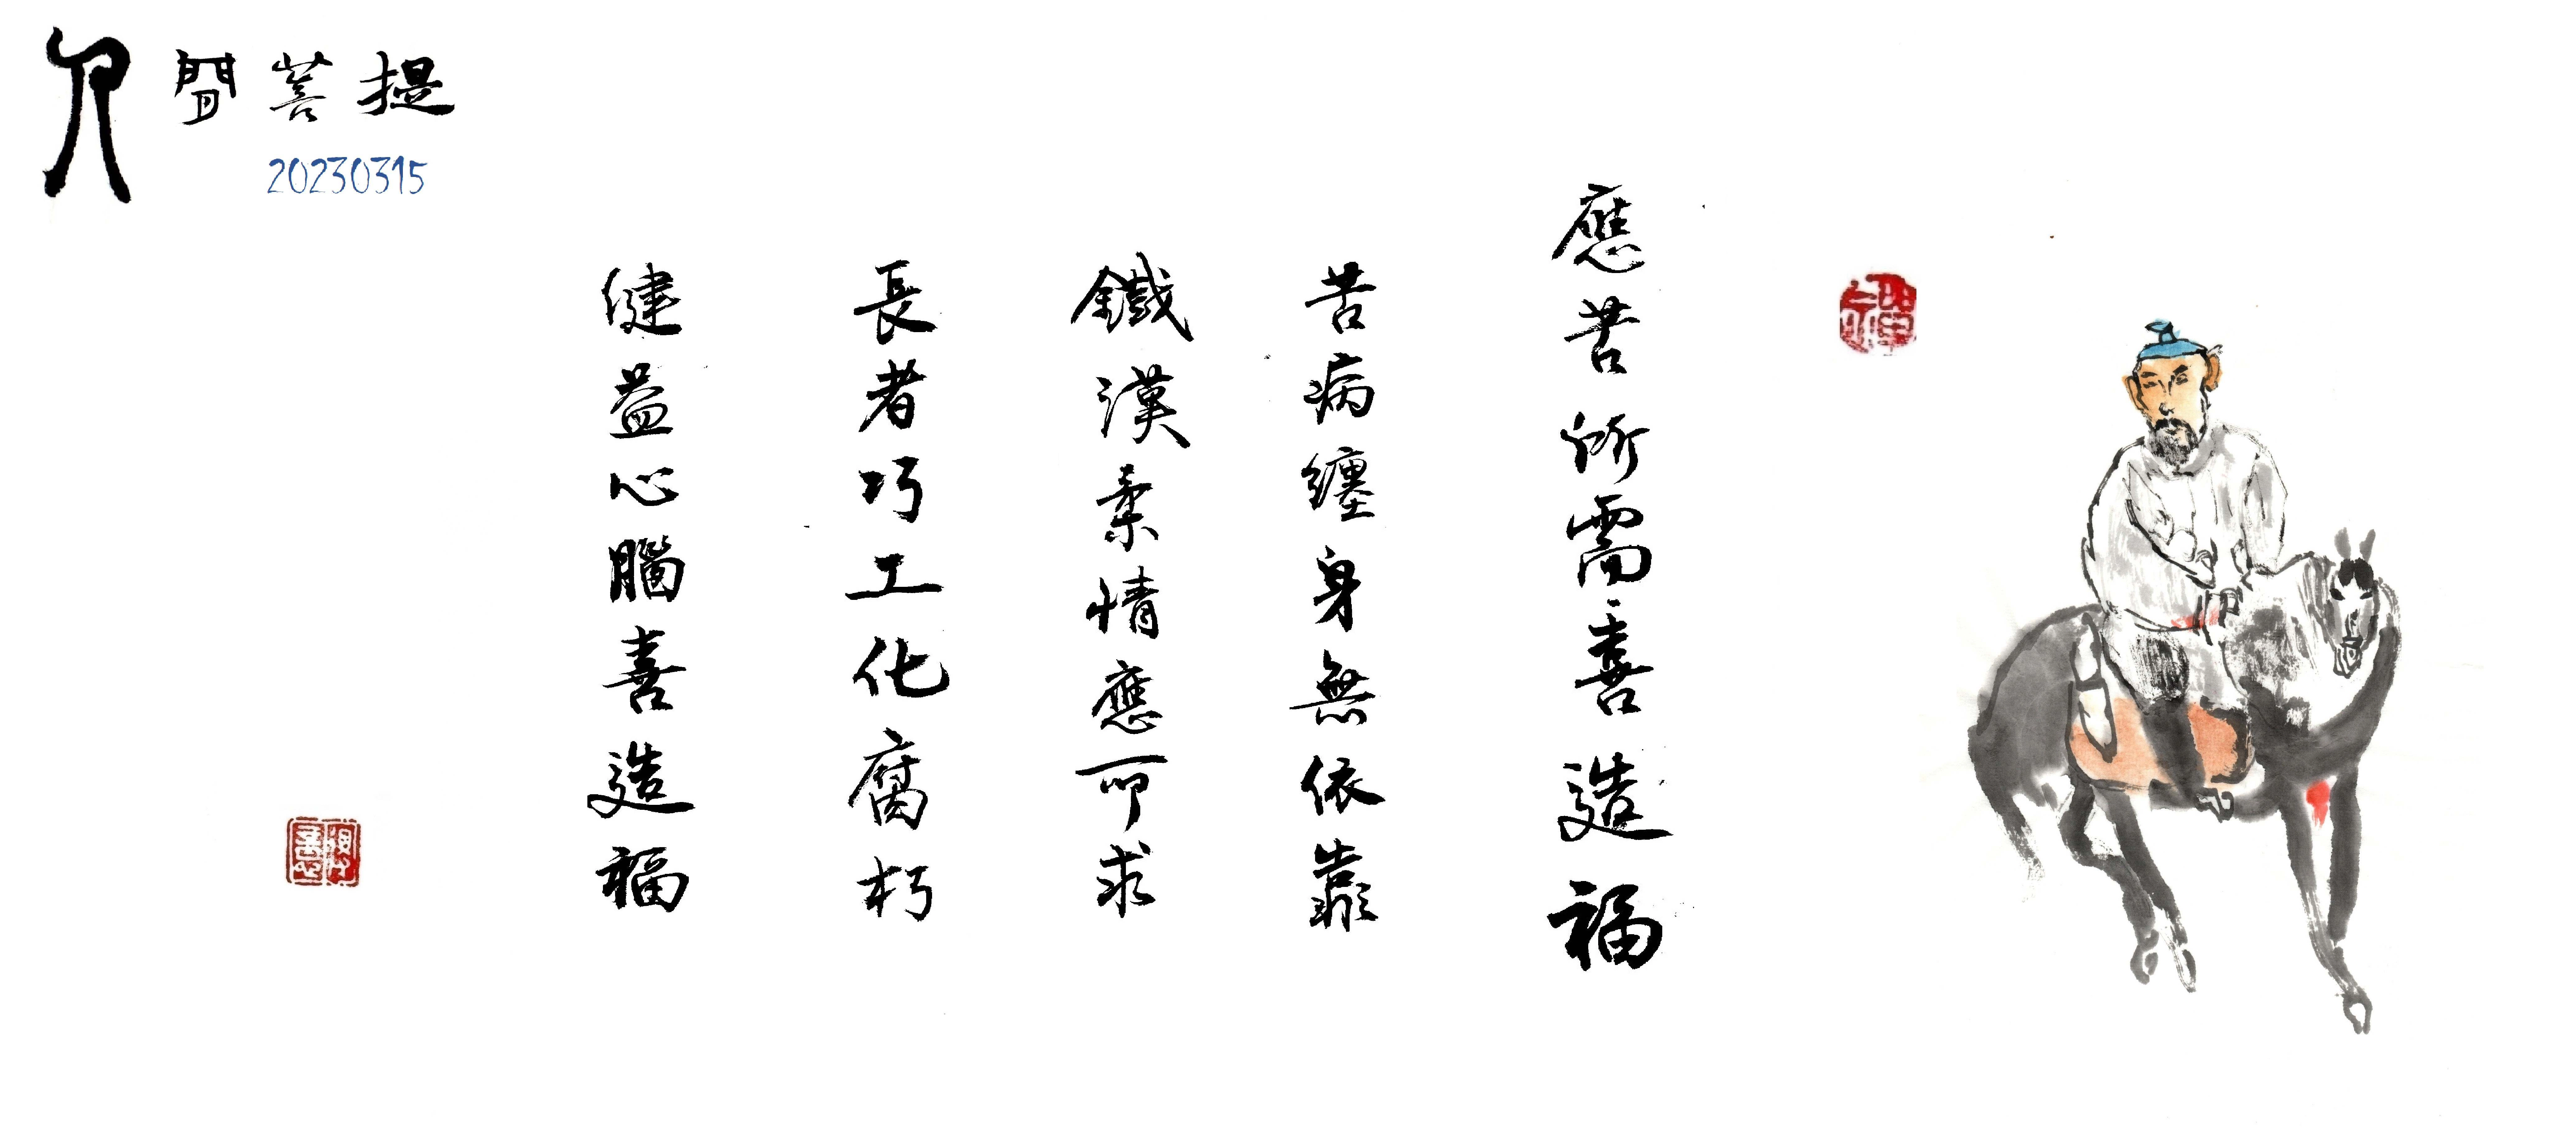 人間菩提
20230315
應苦所需善造福
苦病纏身無依靠
鐵漢柔情應所求
長者巧工化腐朽
健益心腦善造福